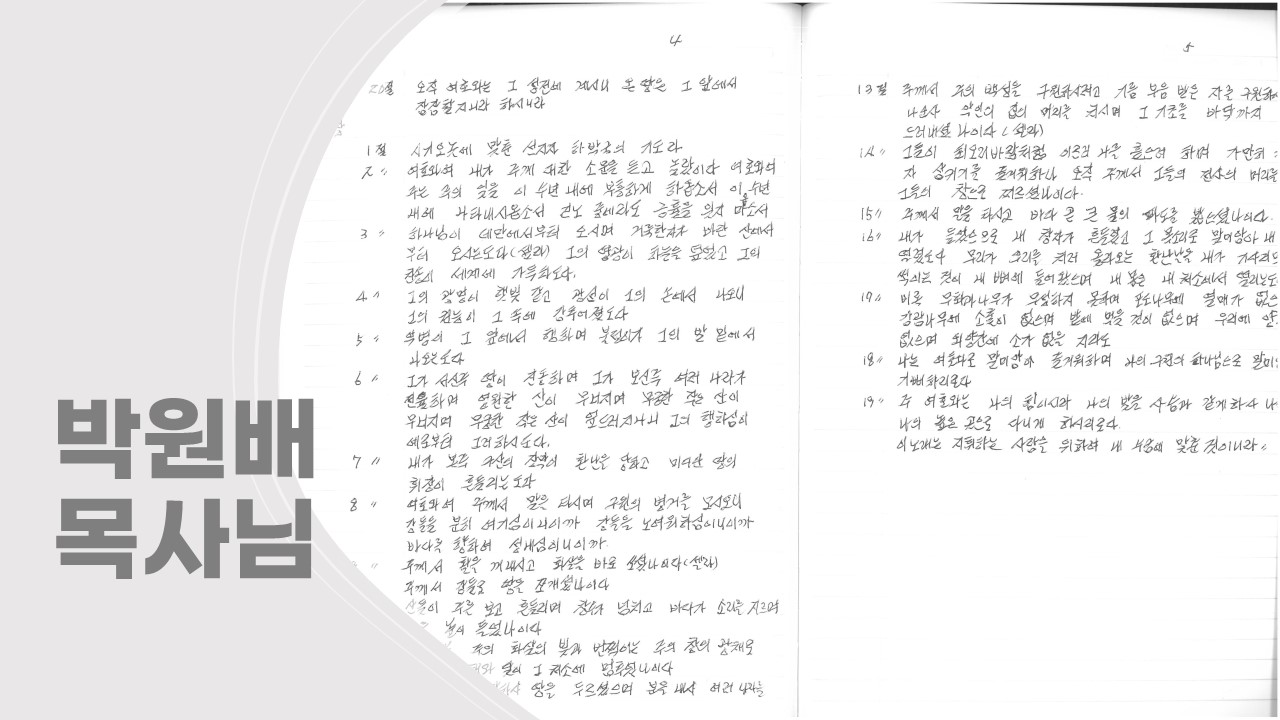 박원배
목사님
4
20절 오직 여호와는 그 성전에 계시니 온 땅은 그 앞에서
잠잠할지니라 하시니라
1절 시기오놋에 맞춘 선지자 하박국의 기도라
2〃 여호와여 내가 주께 대한 소문을 듣고 놀랐나이다 여호와여
주는 주의 일을 이 수년 내에 부흥하게 하옵소서 이 수년
내에 나타내시옵소서 진노 중에라도 긍휼을 잊지 마소서
3〃 하나님이 데만에서부터 오시며 거룩한자가 바란 산에서
부터 오시는도다(셀라) 그의 영광이 하늘을 덮었고 그의
찬송이 세계에 가득하도다.
4〃 그의 광명이 햇빛 같고 광선이 그의 손에서 나오니
그의 권능이 그 속에 감추어졌도다
5〃 역병이 그 앞에서 행하며 불덩이가 그의 발 밑에서
나오는도다
6〃 그가 서신즉 땅이 진동하며 그가 보신즉 여러 나라가
전율하며 영원한 산이 무너지며 무궁한 작은 산이
무너지며 무궁한 작은 산이 엎드러지나니 그의 행하심이
예로부터 그러하시도다.
7〃 내가 본즉 구산의 장막이 환난을 당하고 미디안 땅의
휘장이 흔들리는도다
8〃 여호와여 주께서 말을 타시며 구원의 병거를 모시오니
강들을 분히 여기심이니이까 강들을 노여워하심이니이까
바다를 향하여 성내심이니이까.
〃 주께서 활을 꺼내시고 화살을 바로 쏘셨나이다(셀라)
주께서 강들로 땅을 쪼개셨나이다
산들이 주를 보고 흔들리며 창수가 넘치고 바다가 소리를 지르며
손을 높이 들었나이다
주의 화살의 빛과 번쩍이는 주의 창의 광채로
해와 달이 그 처소에 멈추었나이다
땅을 두르셨으며 분을 내사 여러 나라를
5
13절 주께서 주의 백성을 구원하시려고 기름 부음 받은 자를 구원하
나오사 악인의 집의 머리를 치시며 그 기초를 바닥까지
드러내셨나이다(셀라)
14〃 그들이 회오리바람처럼 이르러 나를 흩으려 하며 가만히
자 삼키기를 즐거워하나 오직 주께서 그들의 전사의 머리를
그들의 창으로 찌르셨나이다.
15〃 주께서 말을 타시고 바다 곧 큰 물의 파도를 밟으셨나이다.
16〃 내가 들었으므로 내 창자가 흔들렸고 그 목소리로 말미암아 내
떨렸도다 무리가 우리를 치러 올라오는 환난날을 내가 기다리므
썩이는 것이 내 뼈에 들어왔으며 내 몸은 내 처소에서 떨리는도
17〃 비록 무화과나무가 무성하지 못하며 포도나무에 열매가 없으
감람나무에 소출이 없으며 밭에 먹을 것이 없으며 우리에 양
없으며 외양간에 소가 없을 지라도
18〃 나는 여호와로 말미암아 즐거워하며 나의 구원의 하나님으로 말미
기뻐하리로다
19〃 주 여호와는 나의 힘이시라 나의 발을 사슴과 같게하사 나
나의 높은 곳으로 다니게 하시리로다.
이 노래는 지휘하는 사람을 위하여 내 수금에 맞춘 것이니라 〃